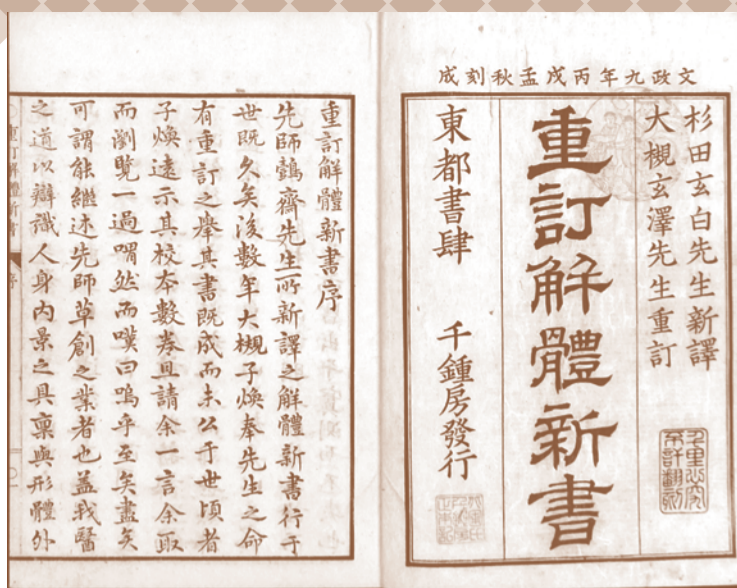 文政九年丙戌孟秋刻成
杉田玄白先生新譯
大槻玄澤先生重訂
重訂解體新書
東都書肆 千鍾房發行
千里必究
不許翻刻
重訂解體新書序
先師鷧齋先生所新譯之解體新書行于
世既久矣後數年大槻子煥奉先生之命
有重訂之舉其書既成而未公于世頃者
子煥遠示其校本數卷且請余一言余取
而瀏覽一過喟然而嘆曰嗚乎至矣盡矣
可謂能繼述先師草創之業者也蓋我醫
之道以辯識人身內景之具稟與形體外
重訂解體新書 序